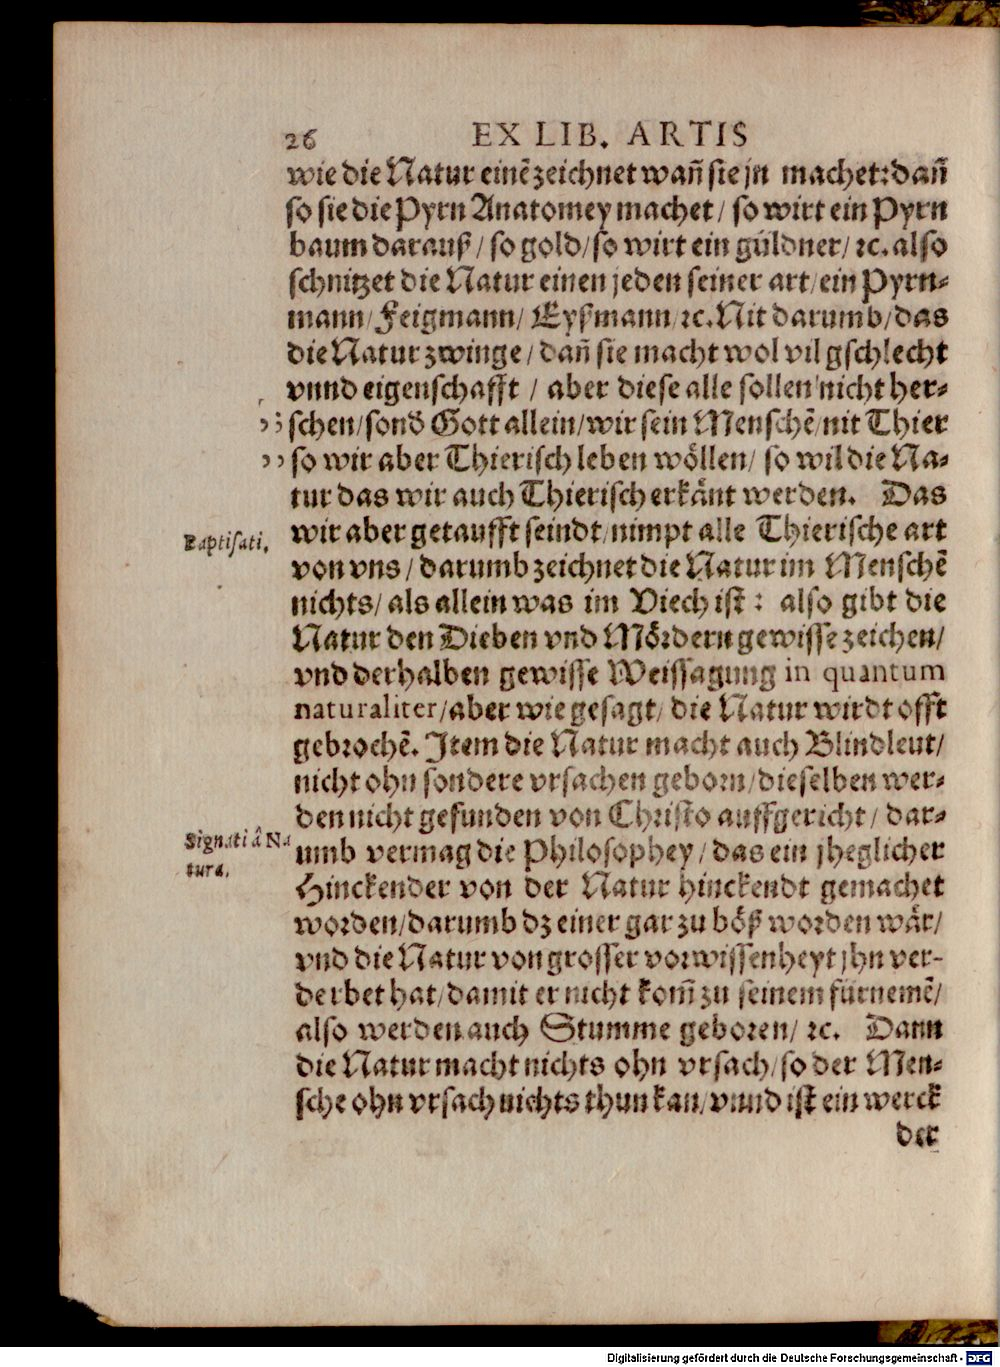 26 EX LIB. ARTIS
wie die Natur einẽ zeichnet wañ sie jn machet: dañ
so sie die Pyrn Anatomey machet / so wirt ein Pyrn
baum darauß / so gold / so wirt ein güldner / ꝛc. also
schnitzet die Natur einen jeden seiner art / ein Pyrn⸗
mann / Feigmann / Eyßmann / ꝛc. Nit darumb / das
die Natur zwinge / dañ sie macht wol vil gschlecht
vnnd eigenschafft / aber diese alle sollen nicht her⸗
schen / sond̕ Gott allein / wir sein Menschẽ / nit Thier
so wir aber Thierisch leben wöllen / so wil die Na⸗
tur das wir auch Thierisch erkãnt werden. Das
Baptisati.
wir aber getaufft seindt / nimpt alle Thierische art
von vns / darumb zeichnet die Natur im Menschẽ
nichts / als allein was im Viech ist: also gibt die
Natur den Dieben vnd Mördern gewisse zeichen /
vnd derhalben gewisse Weissagung in quantum
naturaliter / aber wie gesagt / die Natur wirdt offt
gebrochẽ. Item die Natur macht auch Blindleut /
nicht ohn sondere vrsachen geborn / dieselben wer⸗
den nicht gefunden von Christo auffgericht / dar⸗
Signati â Na
tura.
umb vermag die Philosophey / das ein jheglicher
Hinckender von der Natur hinckendt gemachet
worden / darumb dz einer gar zu böß worden wär /
vnd die Natur von grosser vorwissenheyt jhn ver-
derbet hat / damit er nicht kom̃ zu seinem fürnemẽ /
also werden auch Stumme geboren / ꝛc. Dann
die Natur macht nichts ohn vrsach / so der Men⸗
sche ohn vrsach nichts thun kan / vnnd ist ein werck
der
Digitalisierung gefördert durch die Deutsche Forschungsgemeinschaft - DFG